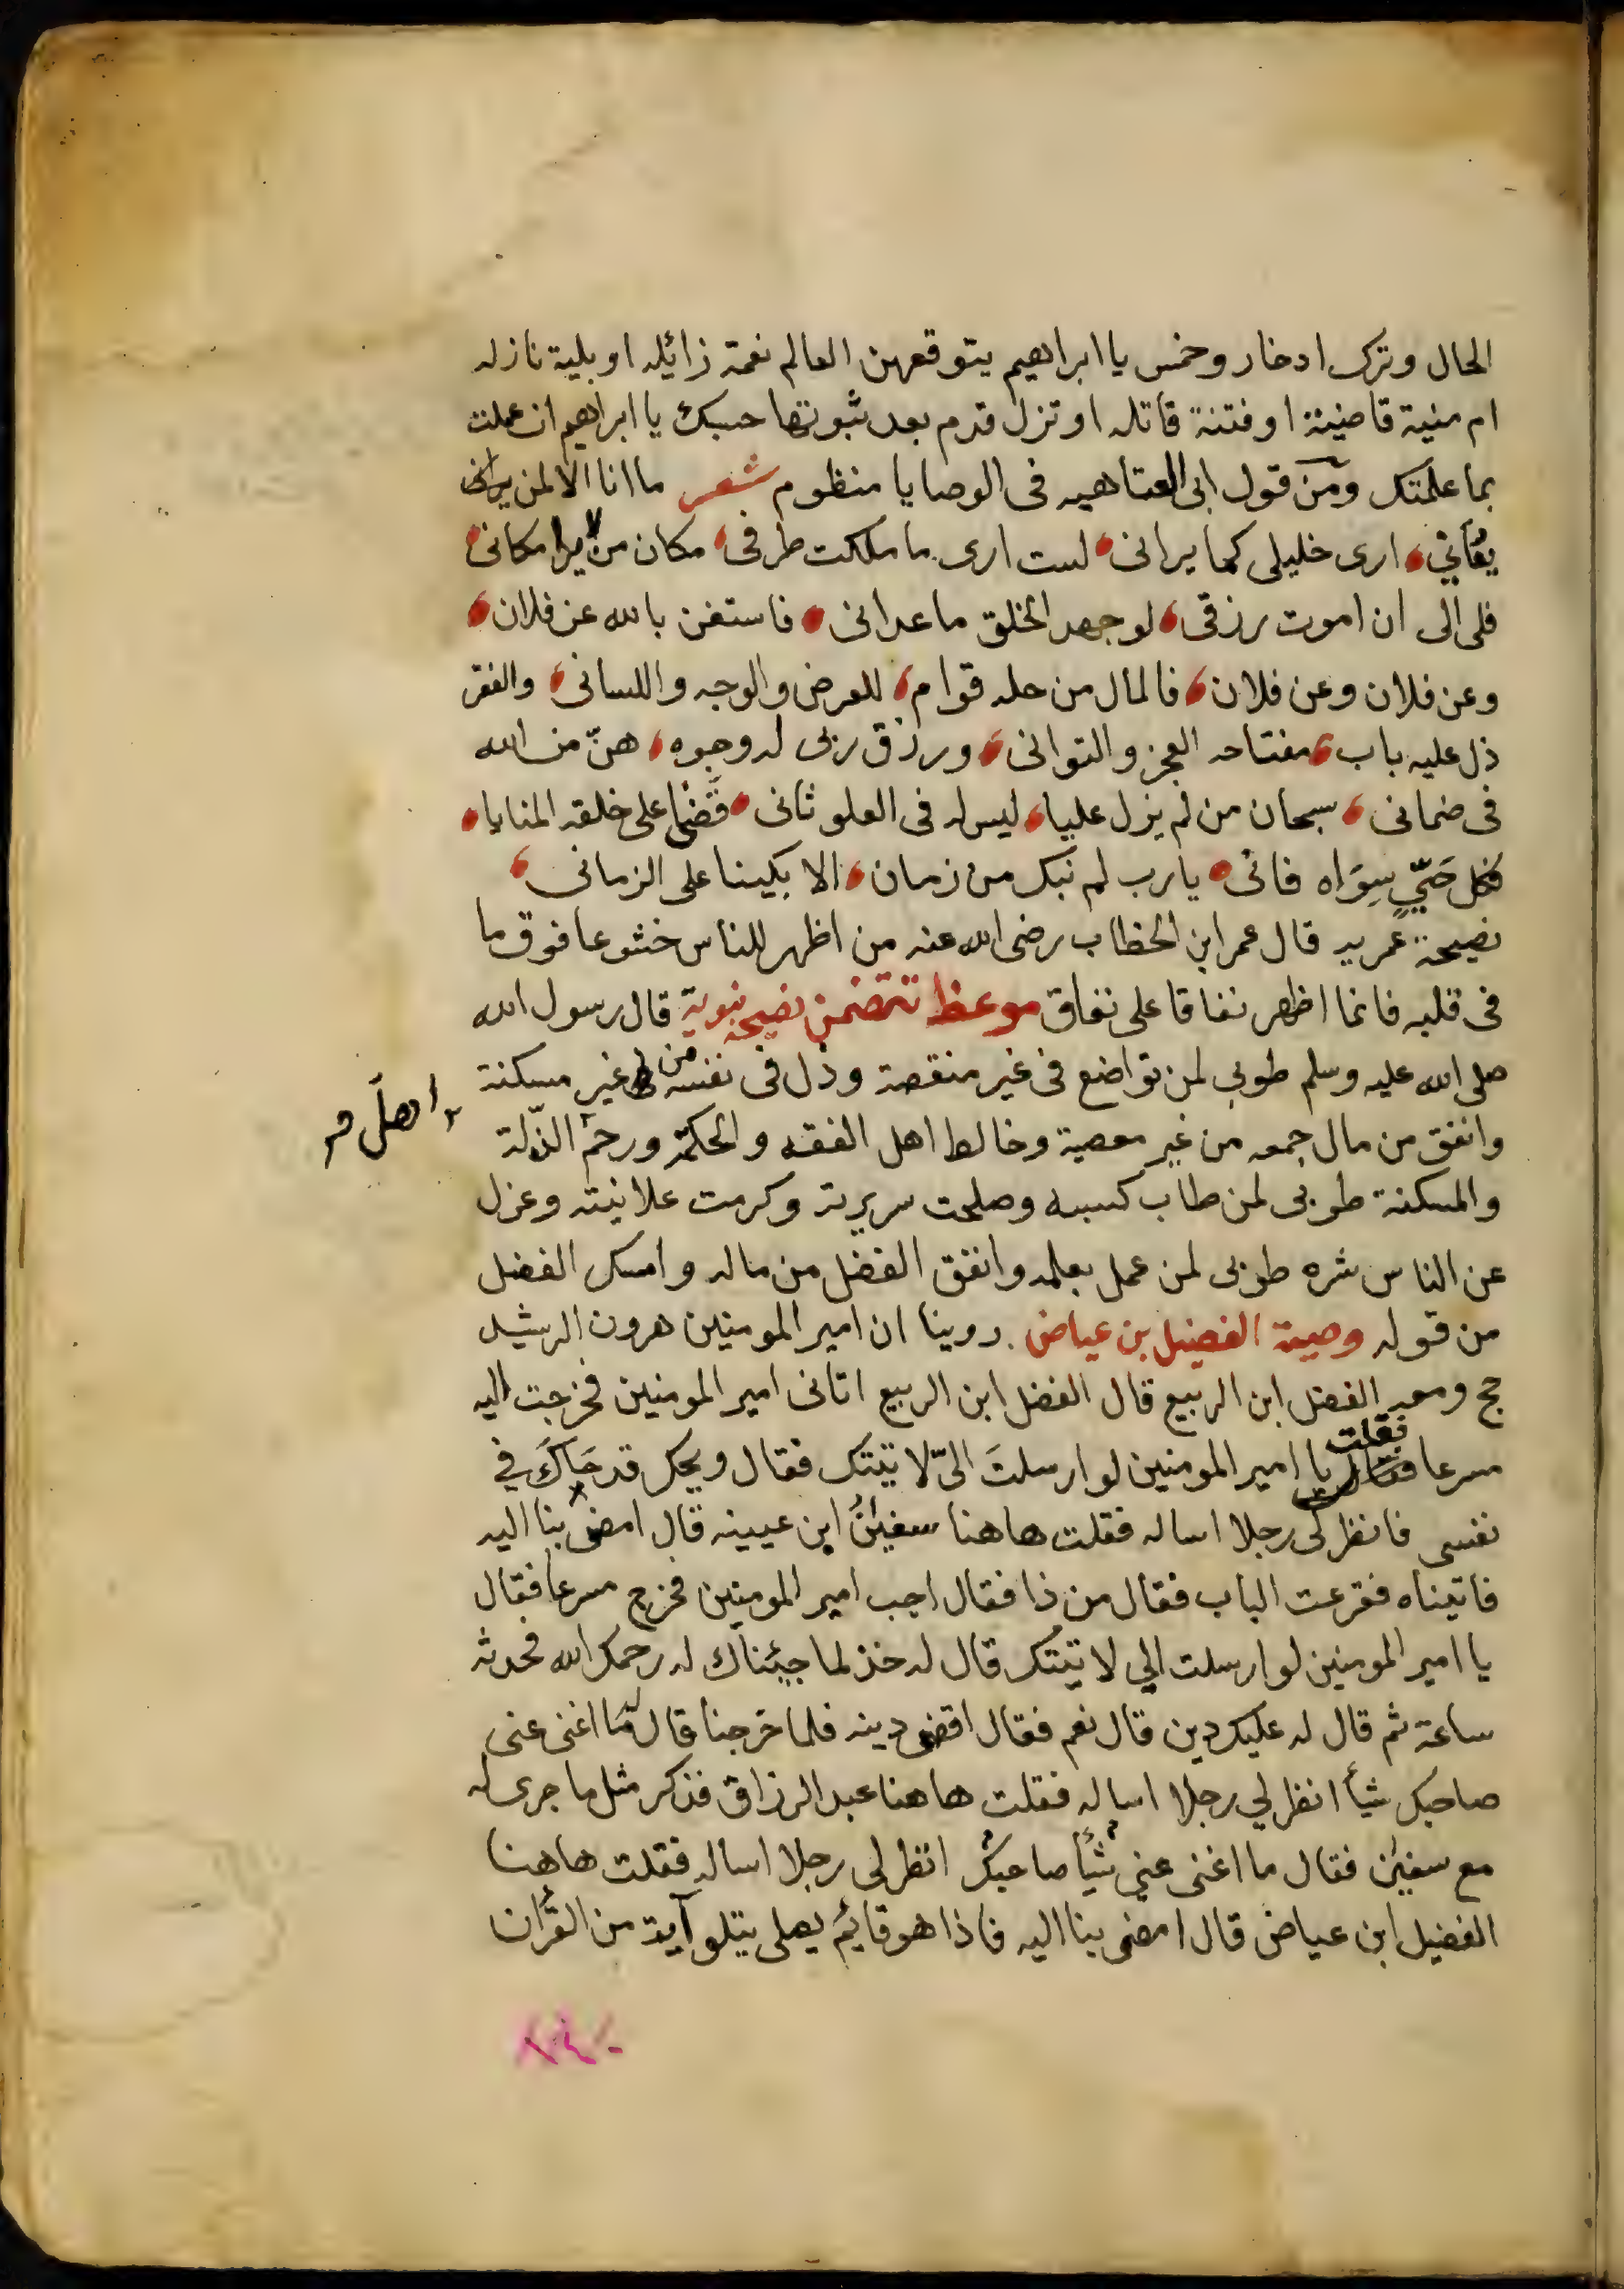 الحال وترك ادخار وخمس يا ابراهيم يتوقعهن العالم نعمة زائله او بلية نازله
ام منية قاضية او فتنة قاتله او تزل قدم بعد ثبوتها حسبك يا ابراهيم ان عملت
بما علمتك ومن قول ابى العتاهيه فى الوصايا منظوم شعر ما انا الا لمن يرانى
ارى خليلى كما يرانى لست ارى ما ملكت طرفى مكان من لا يرا مكانى
فلى الى ان اموت رزقى لو جهد الخلق ما عدانى فاستغن بالله عن فلان
وعن فلان وعن فلان فالمال من حله قوام للعرض والوجه واللسانى والفقر
ذل عليه باب مفتاحه العجز والتوانى ورزق ربى له وجوه هنّ من الله
فى ضمانى سبحان من لم يزل عليا ليس له فى العلو ثانى قضا على خلقه المنايا
فكل حَيٍّ سِوَاه فانى يا رب لم نبك من زمان الا بكينا على الزمانى
نصيحة عمريه قال عمر ابن الخطاب رضى الله عنه من اظهر للناس خشوعا فوق ما
فى قلبه فانما اظهر نفاقا على نفاق موعظ تتضمن نصيحة نبوية قال رسول الله
صلى الله عليه وسلم طوبى لمن تواضع فى غير منقصة وذل فى نفسه من غير مسكنة
وانفق من مال جمعه من غير معصية وخالط اهل الفقه والحكمة ورحم الذّلة
اهل
والمسكنة طوبى لمن طاب كسبه وصلحت سريرته وكرمت علانيته وعزل
عن الناس شره طوبى لمن عمل بعلمه وانفق الفضل من ماله وامسك الفضل
من قوله وصية الفضيل بن عياض روينا ان امير المومنين هرون الرشيد
حج ومعه الفضل ابن الربيع قال الفضل ابن الربيع اتانى امير المومنين فخرجت اليه
مسرعا فقلت يا امير المومنين لو ارسلتَ الىّ لاتيتك فقال ويحك قد حَاكَ في
نفسى فانظر لى رجلا اساله فقلت هاهنا سفينُ ابن عيينه قال امض بنا اليه
فاتيناه فقرعت الباب فقال من ذا فقال اجب امير المومنين فخرج مسرعا فقال
يا امير المومنين لو ارسلت الي لاتيتك قال له خذ لما جيئناك له رحمك الله فحدثه
ساعة ثم قال له عليك دين قال نعم فقال اقض دينه فلما خرجنا قال ما اغنى عنى
صاحبك شيأ انظر لي رجلا اساله فقلت هاهنا عبد الرزاق فذكر مثل ما جرى له
مع سفين فقال ما اغنى عني شيأ صاحبك انظر لى رجلا اساله فقلت هاهنا
الفضيل ابن عياض قال امضى بنا اليه فاذا هو قايم يصلى يتلو آية من القران